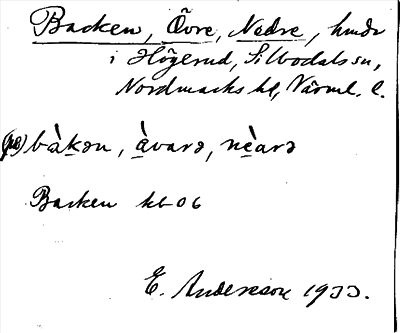 Backen, Övre, Nedre, hmdr
i Högerud, Silbodals sn,
Nordmarks hd, Värml. l.
(på) bàkən, àvarə, nèarə
Backen kb 06
E. Andersson 1933.